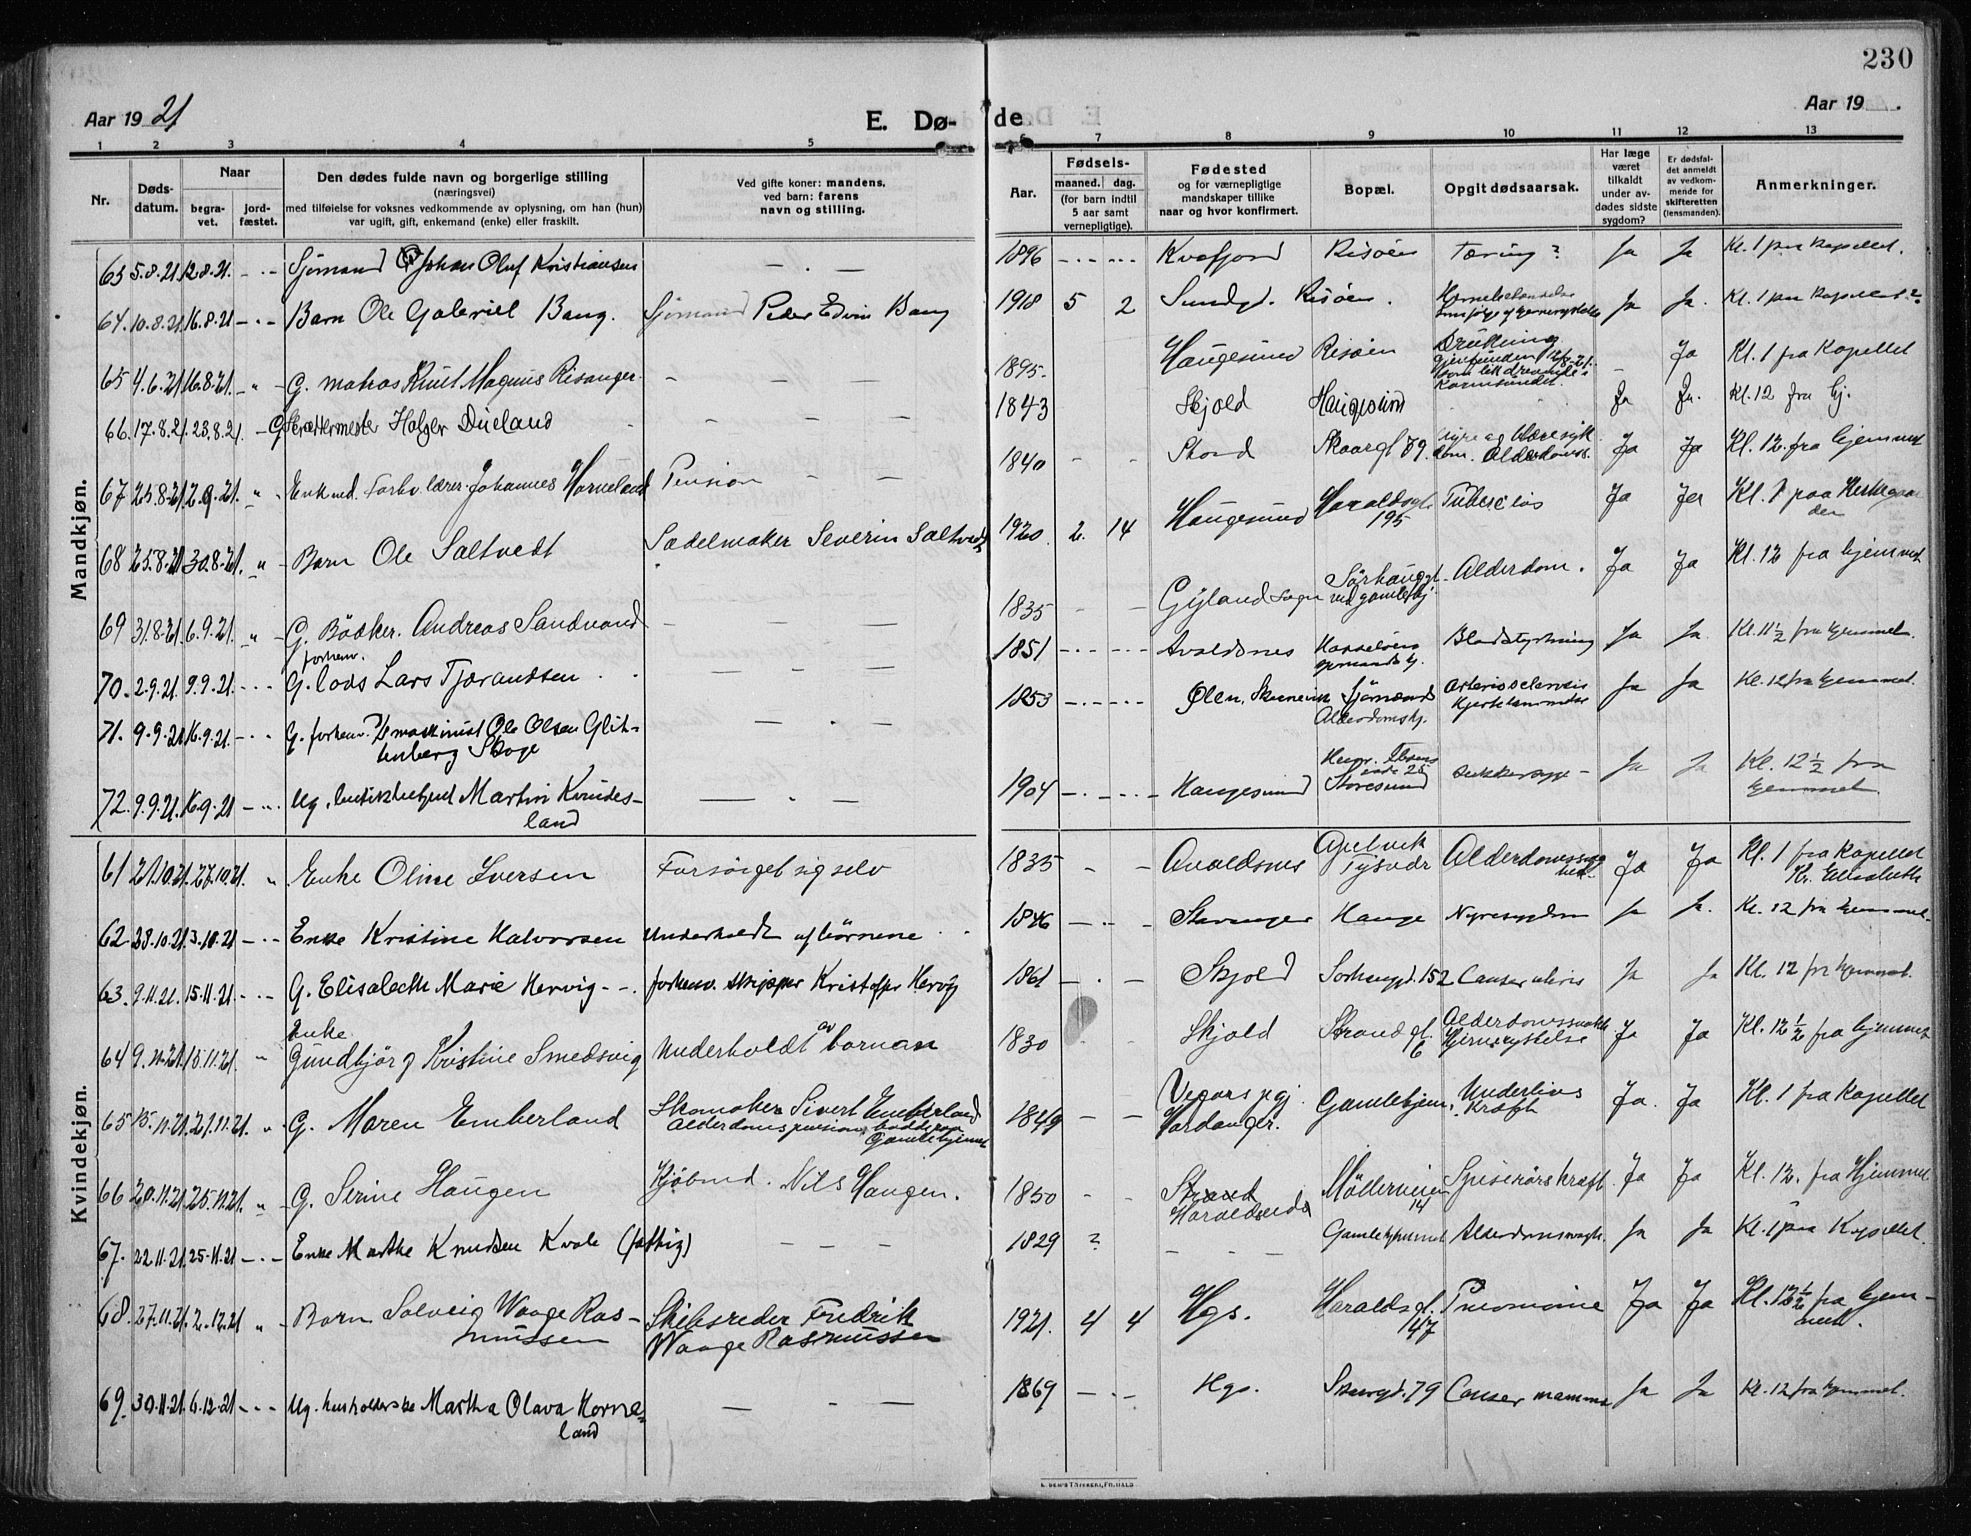 230
Aar 19 21
E. Dø- de
Aar 19
1 2 3 4 5 6 7 8 9 10 11 12 13
Nr.
Døds-
datum.
Naar
begra-
vet.
jord-
fæstet.
Den dødes fulde navn og borgerlige stilling
(næringsvei)
med tilføielse for voksnes vedkommende av oplysning, om han (hun)
var ugift, gift, enkemand (enke) eller fraskilt.
Ved gifte koner: mandens,
ved barn: farens
navn og stilling.
Aar.
Fødsels-
maaned. dag.
(for barn indtil
5 aar samt
vernepligtige).
Fødested
og for værnepligtige
mandskaper tillike
naar og hvor konfirmert.
Bopæl.
Opgit dødsaarsak.
Har læge
været
tilkaldt
under av-
dødes sidste
sygdom?
Er dødsfal-
det anmeldt
av vedkom-
mende for
skifteretten
(lensmanden).
Anmerkninger.
Mandkjøn.
63 5.8.21 12.8.21. - Sjømand Johan Oluf Kristiansen - . - 1896 - - Kvæfjord Risøen Tæring? Ja Ja Kl. 1 paa Kapellet.
64. 10.8.21. 16.8.21 - Barn Ole Gabriel Bang. Sjømand Peder Edvin Bang 1918 5 2 Sundgt. Risøen. Ja Ja. Kl. 1 paa Kapellet
65 4.6.21 16.8.21. " G. matros Knut Magnus Risanger - - - 1895. Haugesund Risøen Drukning
gjenfunden 12/8.21.
som lik drivende i
Karmsundet. - Ja Kl. 1 fra Kapellet
66. 17.8.21. 23.8.21. - G. Skræddermester Holger Dueland - - - 1843 Skjold Haugesund Ja Ja. Kl. 12 fra Hj.
67 25.8.21 2.9.21. " Enkemd. Forhv. lærer Johannes Horneland Pension - - 1840 - - Stord Skaaregt 79. Nyre og blæresyk
dom. Alderdomss. Ja Ja Kl. 12. fra hjemmet
68 25.8.21 30.8.21. " Barn Ole Saltvedt Sadelmaker Severin Saltvedt 1920. 2. 14 Haugesund Haraldsgt.
195 Tuberculos Ja Ja Kl. 1 paa Kirkegaar
den
69 31.8.21 6.9.21. " G. Bödker. Andreas Sandvand - - - 1835 - - Gyland sogn Sørhauggt.
ved gamlehj. Alderdom. Ja Ja Kl. 12 fra hjemmet
70. 2.9.21. 9.9.21. - forhenv.
G. lods Lars Tjærandsen - - - 1851 - - Avaldsnes Hasseløens
gjemands hj. Blodstyrtning Ja Ja. Kl. 11½ fra hjemmet.
71. 9.9.21 16.9.21. - G. forhenv. maskinist Ole Olsen Glit-
tenberg Skoge - . - 1853 - - Ølen, Sjømænds
Alderdomshj. Arteriosclerosis
Hjertelammelse Ja Ja Kl. 12 fra hjemmet.
72. 9.9.21. 16.9.21 - Ug. butikbetjent Martin Kvindes-
land - . - 1904 - - Haugesund Henr. Ibsens
gade 25
Storesund Sukkersyge - Ja Ja Kl. 12½ fra
hjemmet.
Kvindekjøn.
61 21.10.21. 27.10.21. " Enke Oline Iversen Forsørget sig selv 1835 - - Avaldsnes Apelvik
Tysvær Alderdomssvag
het. Ja Ja Kl. 1 fra Kapellet
62 28.10.21 3.10.21 - Enke Kristine Halvorsen Underholdt af børnene 1846 - - Stavanger Hauge Nyresygdom Ja Ja. Kl. 12 fra hjemmet.
63. 9.11.21. 15.11.21 - G. Elisabeth Marie Hervig - - forhenv. skipper Kristoffer Hervig 1861 - - Skjold Sørhauggd. 152 Cancer uteris Ja Ja Kl. 12 fra hjemmet.
64 9.11.21 15.11.21. " Enke
Gundbjörg Kristine Smedsvig Underholdt av barnan 1830 Skjold Strandgt.
6 Alderdomssvakh.
Hjernerystelse Ja Ja Kl. 12½ fra hjemmet
65 15.11.21. 21.11.21. " G. Maren Emberland Skomaker Sivert Emberland
Alderdomspension, bodde paa
Gamlehjemmet 1849 - - Hardanger. Gamlehjem. Underlivs
Kræft Ja. Ja Kl. 1 fra Kapellet
66 20.11.21. 25.11.21. " G. Serine Haugen Kjöbmd. Nils Haugen. 1850 - - Strand
Møllerveien
14 Spiserörskræft. Ja Ja Kl. 12. fra Hjemmet
67. 22.11.21 25.11.21 - Enke Marthe Knudsen Kvale (fattig) - - - 1829 ? - - - Gamlehjemmet Alderdomssvagh. Ja Ja Kl. 1 paa Kapellet.
68. 27.11.21 2.12.21 " Barn Solveig Waage Ras-
mussen Skibsreder Fredrik
Waage Rasmussen 1921. 4 4 Hgs. Haraldsgt.
147 Pneumonie Ja Ja Kl. 12½ fra hjem-
met.
69. 30.11.21. 6.12.21 - Ug. husholderske Martha Olava Horne-
land - - - 1869 - - Hgs. Skaregd. 79 Cancer mamma Ja Ja Kl. 12 fra hjemmet.